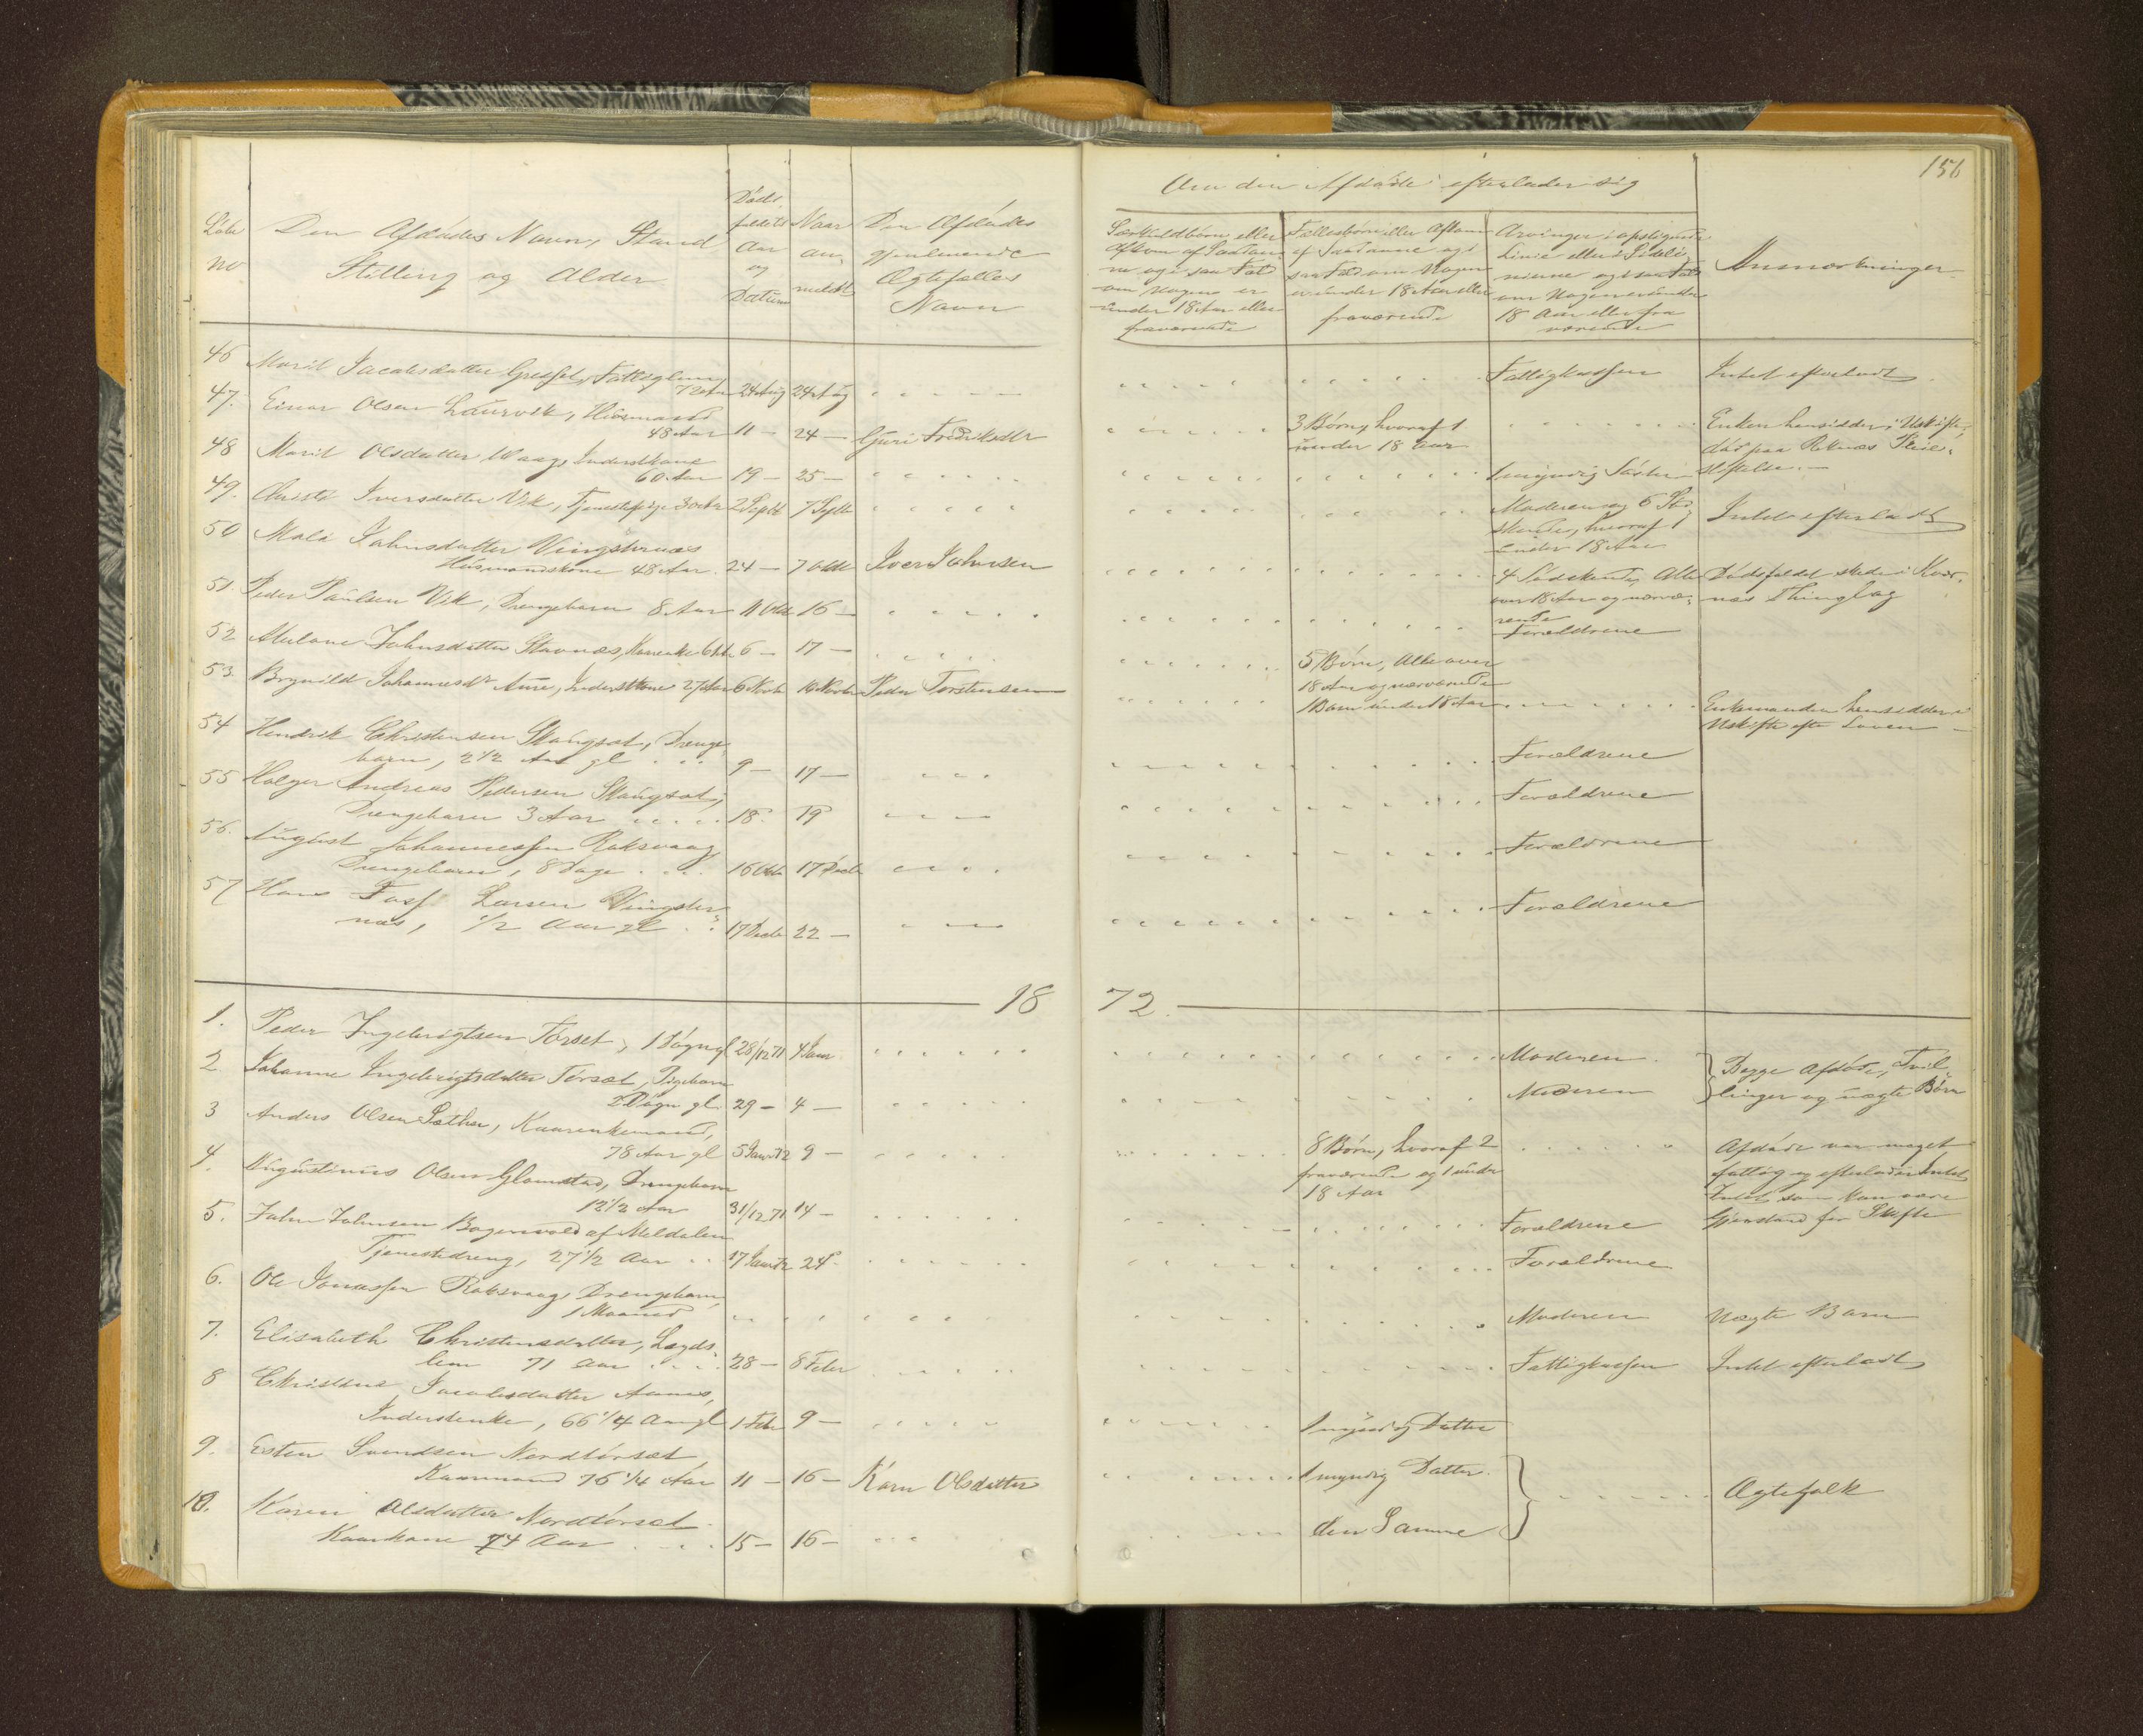 156
Løbe
No
Den Afdødes Navn, Stand
Stilling og Alder
Døds-
faldets
Aar
og
Datum
Naar
an-
meldt
Den Afdødes
gjenlevende
Ægtefælles
Navn
Om den Afdøde efterlader sig
Særkuldbørn eller
Afkom af Saadan-
ne og i saa Fald
om Nogen er
under 18 Aar eller
fraværende
Fællesbørn eller Afkom
af Saadanne og i
saa Fald om Nogen
er under 18 Aar eller
fraværende
Arvinger i opstigende
Linie eller i Sideli-
nierne og i saa Fald
om Nogen er under
18 Aar eller fra
værende
Anmærkninger
46 Marit Jacobsdatter Fattiglem
72 Aar 24 Aug 24 Aug Fattigkassen Intet efterladt
47. Einar Olsen Laurvik, Huusmand
48 Aar 11 – 24 – Guri Fredriksdtr 3 Børn, hvoraf 1
under 18 Aar
Enken hensidder i Uskifte,
død paa Reknæs Pleie-
stiftelse. –
48 Marit Olsdatter Vaag, Inderstkone
60 Aar 19 – 25 – 1 myndig Søster
49. Christi Iversdatter Vik, Tjenestepige 30 Aar 2 Septb 7 Septb Moderen og 6 Sød-
skende, hvoraf 1
under 18 Aar
Intet efterladt
50 Mali Johnsdatter Vingsternæs
Huusmandskone 48 Aar. 24 – 7 Oktb Iver Johnsen 4 Sødskende, Alle
over 18 Aar og nærvæ-
rende
Dødsfaldet skede i Kvær-
næs Thinglag
51. Peder Paulsen Vik, Drengebarn 8 Aar 11 Oktb 16 – Forældrene
52 Johnsdatter Stavnæs, 6 – 17 – 5 Børn, Alle over
18 Aar og nærværende
53. Brynild Johannesdr Aure, Inderstkone 27 Aar 6 Novbr 16 Novbr Peder Torstensen 1 Barn under 18 Aar Enkemanden hensidder i
Uskifte efter Loven –
54 Hendrik Christensen Skaugset, Drenge-
barn, 2 1/2 Aar gl 9 – 17 – Forældrene
55 Holger Andreas Pedersen Skaugset,
Drengebarn 3 Aar 18 19 Forældrene
56. August Johannessen Roksvaag,
Drengebarn, 8 Dage 16 Oktb 17 Decbr Forældrene
57 Hans Larsen Vingster-
næs, 1/2 Aar gl 17 Decbr 22 – Forældrene
18 72.
1. Peder Ingebrigtsen Torset, 1 Døgn gl 28/12 71 4 Janr. Moderen
2. Johanne Ingebrigtsdatter Torset, Pigebarn
2 Døgn gl. 29 – 4 – Moderen
Begge Afdøde, Tvil-
linger og uægte Børn
3 Anders Olsen Sæther, Kaarenkemand,
78 Aar gl 5 Janr 72 9 – 8 Børn, hvoraf 2
fraværende og 1 under
18 Aar
Afdøde var meget
fattig og efterlader Intet
Intet som kan være
Gjenstand for Skifte
4. Augustinus Olsen Glamstad, Drengebarn
12 1/2 Aar 31/12 71 14 – Forældrene
5. John Johnsen Bagervold af Meldalen
Tjenestedreng, 27 1/2 Aar 17 Janr 72 24 Forældrene
6. Ole Jonassen Roksvaag, Drengebarn,
1 Maaned Moderen Uægte Barn
7. Elisabeth Christensdatter, Lægds-
lem 71 Aar 28 – 8 Febr Fattigkassen Intet efterladt
8 Christine Jacobsdatter Aanes,
Inderstenke, 66 1/4 Aar gl 1 Febr 9 – 1 myndig Datter
9. Esten Svendsen Nordtørset
Kaarmand 76 1/4 Aar 11 – 16 – Karn Olsdatter 1 myndig Datter.
10. Karen Olsdatter Nordtørset
Kaarkone 74 Aar 15 – 16 – den Samme
Ægtefolk